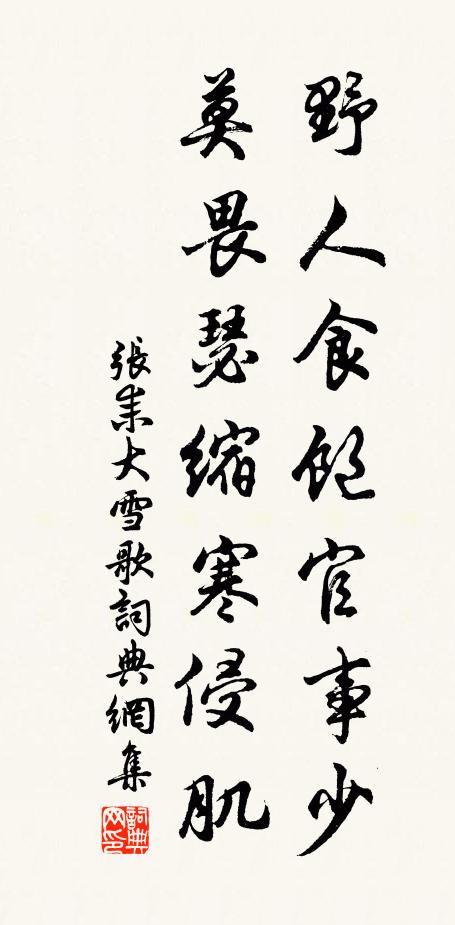 野人食飽官事少
莫畏瑟縮寒侵肌
張耒大雪歌詞典網集
詞典网印